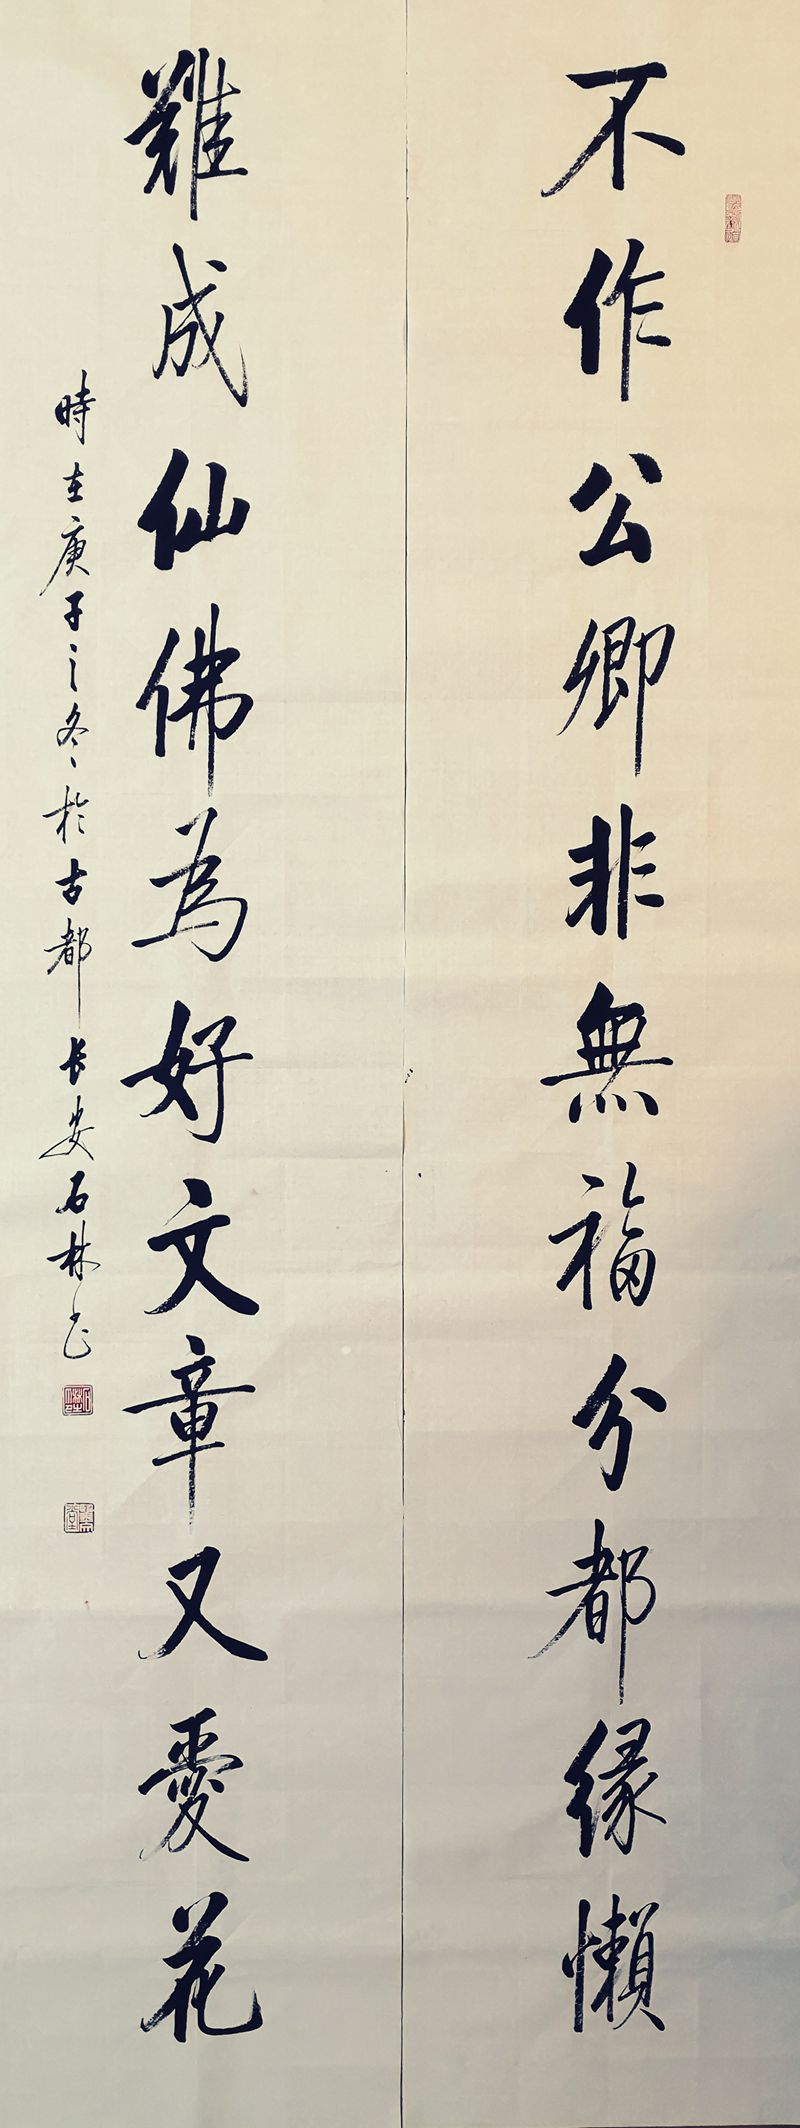 不作公卿非無福分都緣懶
難成仙佛為好文章又愛花
時在庚子之冬於古都長安石林书